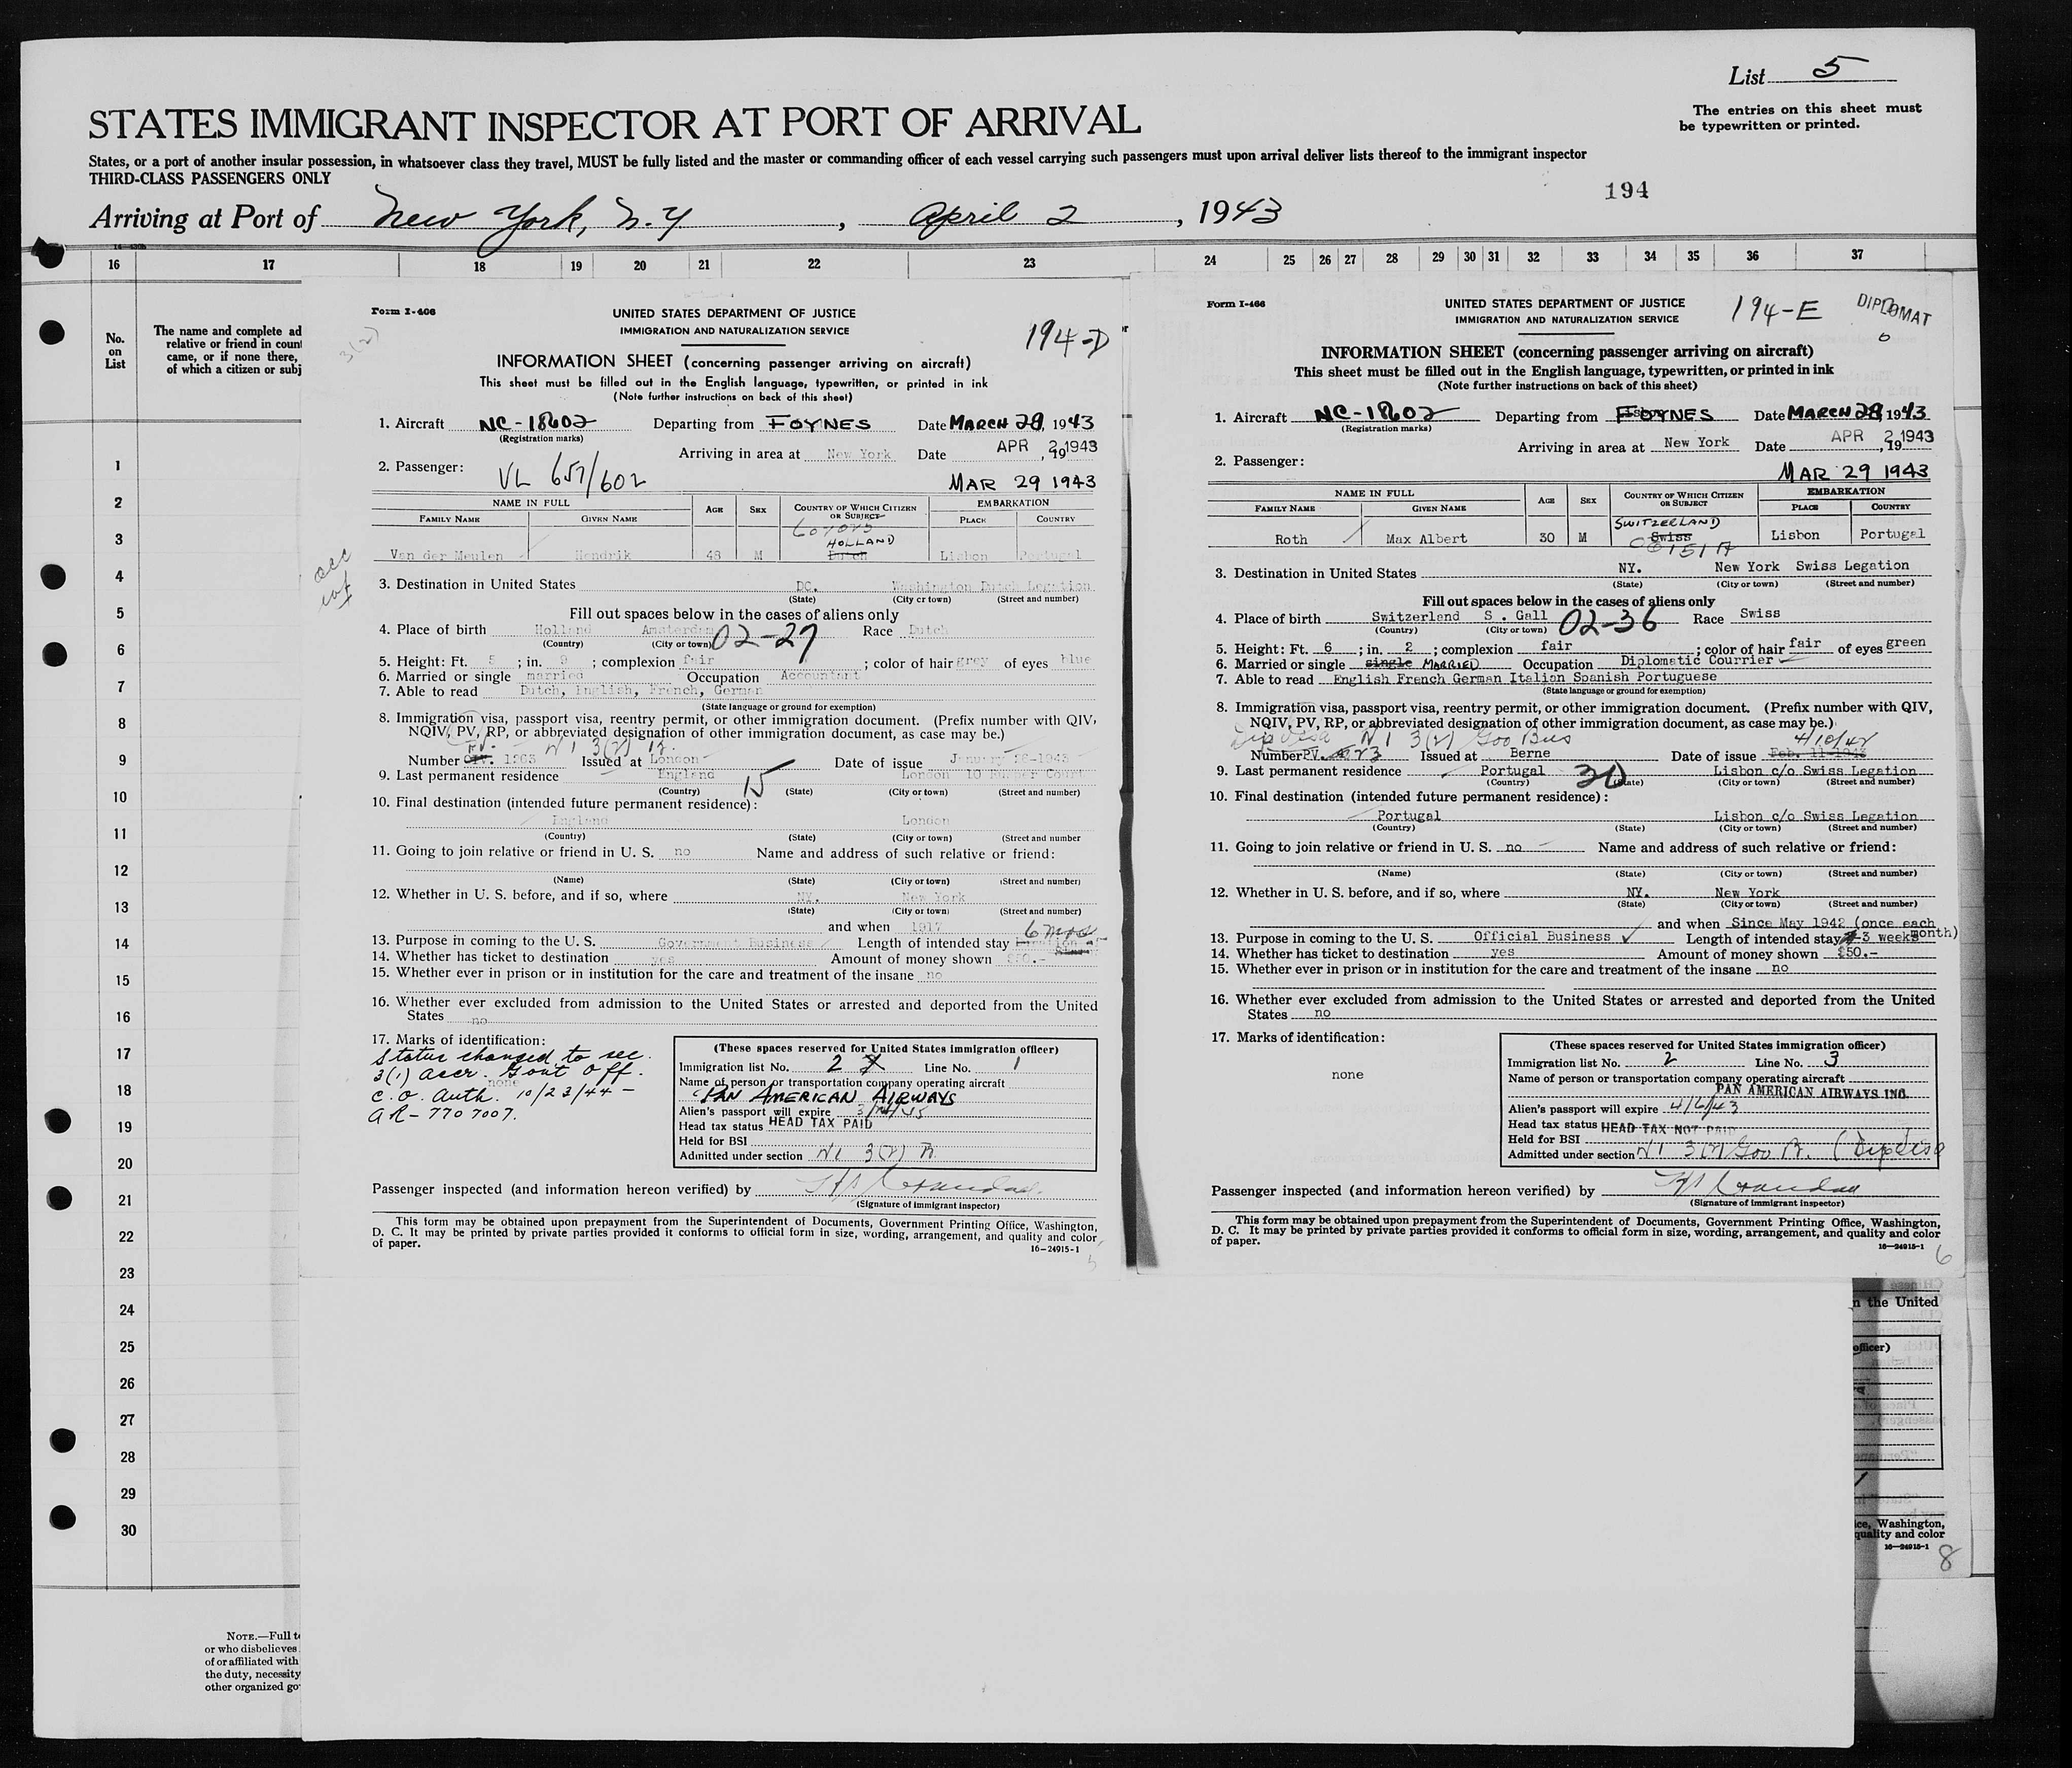 List 5
The entries on this sheet must
be typewritten or printed.
STATES IMMIGRANT INSPECTOR AT PORT OF ARRIVAL
States, or a port of another insular possession, in whatsoever class they travel, MUST be fully listed and the master or commanding officer of each vessel carrying such passengers must upon arrival deliver lists thereof to the immigrant inspector
THIRD-CLASS PASSENGERS ONLY
194
Arriving at Port of New York, N.Y , April 2 , 1943
16 17 18 19 20 21 22 23 24 25 26 27 28 29 30 31 32 33 34 35 36 37
No.
on
List
The name and complete ad
relative or friend in count
came, or if none there,
of which a citizen or subj
1
2
3
4
5
6
7
8
9
10
11
12
13
14
15
16
17
18
19
20
21
22
23
24
25
26
27
28
29
30
NOTE.—Full t
or who disbelieves
of or affiliated with
the duty, necessity
other organized go
3(2)
Form I-466
UNITED STATES DEPARTMENT OF JUSTICE
IMMIGRATION AND NATURALIZATION SERVICE
194-D
INFORMATION SHEET (concerning passenger arriving on aircraft)
This sheet must be filled out in the English language, typewritten, or printed in ink
(Note further instructions on back of this sheet)
1. Aircraft NC-18602 Departing from FOYNES Date MARCH 28, 1943
(Registration marks)
Arriving in area at New York Date APR 2 1943, 19
2. Passenger: VL 657/602 MAR 29 1943
NAME IN FULL AGE SEX COUNTRY OF WHICH CITIZEN OR SUBJECT EMBARKATION
FAMILY NAME GIVEN NAME PLACE COUNTRY
HOLLAND
Van der Meulen Hendrik 48 M Dutch Lisbon Portugal
3. Destination in United States DC. Washington Dutch Legation
(State) (City or town) (Street and number)
Fill out spaces below in the cases of aliens only
4. Place of birth Holland Amsterdam 02-27 Race Dutch
(Country) (City or town)
5. Height: Ft. 5 ; in. 9 ; complexion fair ; color of hair grey of eyes blue
6. Married or single married Occupation Accountant
7. Able to read Dutch, English, French, German
(State language or ground for exemption)
8. Immigration visa, passport visa, reentry permit, or other immigration document. (Prefix number with QIV,
NQIV, PV, RP, or abbreviated designation of other immigration document, as case may be.)
Number Issued at London Date of issue
9. Last permanent residence England 15 London
(Country) (State) (City or town) (Street and number)
10. Final destination (intended future permanent residence):
England London
(Country) (State) (City or town) (Street and number
11. Going to join relative or friend in U. S. no Name and address of such relative or friend:
(Name) (State) (City or town) (Street and number)
12. Whether in U. S. before, and if so, where NY. New York
(State) (City or town) (Street and number)
and when 1917
13. Purpose in coming to the U. S. Government Business Length of intended stay 6 mos
14. Whether has ticket to destination yes Amount of money shown $50.-
15. Whether ever in prison or in institution for the care and treatment of the insane no
16. Whether ever excluded from admission to the United States or arrested and deported from the United
States no
17. Marks of identification:
none
Status changed to sec.
3(1) accr. Govt off.
C.O. Auth. 10/23/44 -
AR- 7707007.
(These spaces reserved for United States immigration officer)
Immigration list No. 2 Line No. 1
Name of person or transportation company operating aircraft
PAN AMERICAN AIRWAYS
Alien's passport will expire
Head tax status HEAD TAX PAID
Held for BSI
Admitted under section
Passenger inspected (and information hereon verified) by
(Signature of immigrant inspector)
This form may be obtained upon prepayment from the Superintendent of Documents, Government Printing Office, Washington,
D. C. It may be printed by private parties provided it conforms to official form in size, wording, arrangement, and quality and color
of paper.
16-24915-1
5
Form I-466
UNITED STATES DEPARTMENT OF JUSTICE
IMMIGRATION AND NATURALIZATION SERVICE
194-E
DIPLOMAT
INFORMATION SHEET (concerning passenger arriving on aircraft)
This sheet must be filled out in the English language, typewritten, or printed in ink
(Note further instructions on back of this sheet)
1. Aircraft NC-18602 Departing from FOYNES Date MARCH 28, 1943
(Registration marks)
Arriving in area at New York Date APR 2 1943, 19
2. Passenger: MAR 29 1943
NAME IN FULL AGE SEX COUNTRY OF WHICH CITIZEN OR SUBJECT EMBARKATION
FAMILY NAME GIVEN NAME PLACE COUNTRY
SWITZERLAND
Roth Max Albert 30 M Swiss Lisbon Portugal
3. Destination in United States NY. New York Swiss Legation
(State) (City or town) (Street and number)
Fill out spaces below in the cases of aliens only
4. Place of birth Switzerland S . Gall 02-36 Race Swiss
(Country) (City or town)
5. Height: Ft. 6 ; in. 2 ; complexion fair ; color of hair fair of eyes green
6. Married or single single MARRIED Occupation Diplomatic Courrier
7. Able to read English French German Italian Spanish Portuguese
(State language or ground for exemption)
8. Immigration visa, passport visa, reentry permit, or other immigration document. (Prefix number with QIV,
NQIV, PV, RP, or abbreviated designation of other immigration document, as case may be.)
Number PV. Issued at Berne Date of issue Feb. 11-1943
9. Last permanent residence Portugal 30 Lisbon c/o Swiss Legation
(Country) (State) (City or town) (Street and number)
10. Final destination (intended future permanent residence):
Portugal Lisbon c/o Swiss Legation
(Country) (State) (City or town) (Street and number)
11. Going to join relative or friend in U. S. no Name and address of such relative or friend:
(Name) (State) (City or town) (Street and number)
12. Whether in U. S. before, and if so, where NY. New York
(State) (City or town) (Street and number)
and when Since May 1942 (once each month)
13. Purpose in coming to the U. S. Official Business Length of intended stay 3 weeks
14. Whether has ticket to destination yes Amount of money shown $50.-
15. Whether ever in prison or in institution for the care and treatment of the insane no
16. Whether ever excluded from admission to the United States or arrested and deported from the United
States no
17. Marks of identification:
none
(These spaces reserved for United States immigration officer)
Immigration list No. 2 Line No. 3
Name of person or transportation company operating aircraft
PAN AMERICAN AIRWAYS INC.
Alien's passport will expire 4/6/43
Head tax status HEAD TAX NOT PAID
Held for BSI
Admitted under section
Passenger inspected (and information hereon verified) by
(Signature of immigrant inspector)
This form may be obtained upon prepayment from the Superintendent of Documents, Government Printing Office, Washington,
D. C. It may be printed by private parties provided it conforms to official form in size, wording, arrangement, and quality and color
of paper.
16—24915-1
6
n the United
officer)
ice, Washington,
quality and color
16—24915-1
8